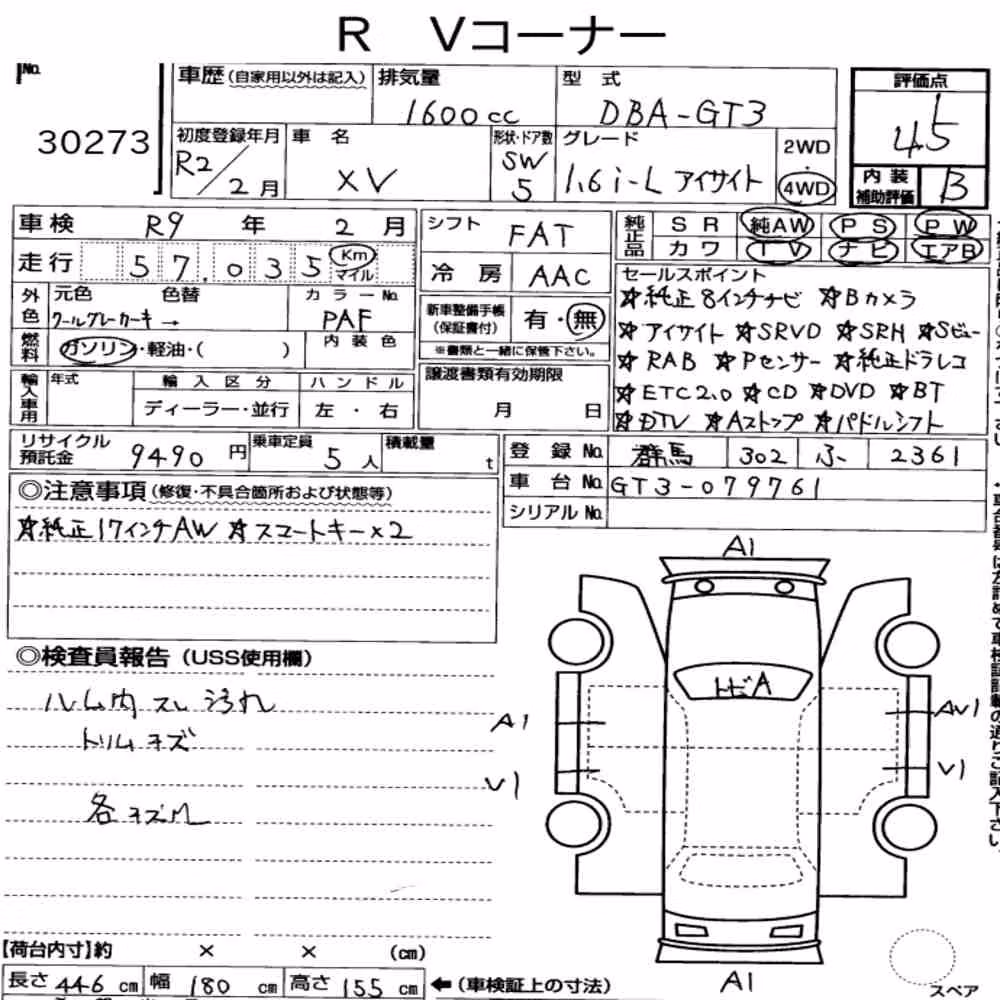 R Vコーナー
No. 30273
車歴(自家用以外は記入) 排気量 1600cc 型式 DBA-GT3
評価点 4.5
内装補助評価 B
初度登録年月 R2/2月 車名 XV 形状・ドア数 SW 5 グレード 1.6i-L アイサイト 2WD・4WD
車検 R9年 2月 シフト FAT
走行 57.035 Km マイル 冷房 AAC
純正品 SR 純AW PS PW
カワ TV ナビ エアB
外色 元色 色替 カラーNo.
クールグレーカーキ→ PAF
燃料 ガソリン・軽油・( ) 内装色
新車整備手帳(保証書付) 有・無
※書類と一緒に保管下さい。
輸入車用 年式 輸入区分 ハンドル
ディーラー・並行 左・右
譲渡書類有効期限
月 日
セールスポイント
☆純正8インチナビ ☆Bカメラ
☆アイサイト ☆SRVD ☆SRH ☆Sビュー
☆RAB ☆Pセンサー ☆純正ドラレコ
☆ETC2.0 ☆CD ☆DVD ☆BT
☆DTV ☆Aストップ ☆パドルシフト
リサイクル預託金 9490円 乗車定員 5人 積載量 t
登録No. 群馬 302 ふ 2361
車台No. GT3-079761
シリアルNo.
◎注意事項(修復・不具合箇所および状態等)
☆純正17インチAW ☆スマートキー×2
◎検査員報告(USS使用欄)
ルーム内 スレ 汚れ
トリムキズ
各キズ
A1
トビA
A1
V1
AV1
V1
A1
【荷台内寸】約 × × (cm)
長さ 446 cm 幅 180 cm 高さ 155 cm ←(車検証上の寸法)
スペア